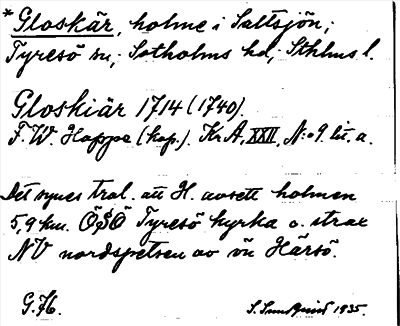 * Gloskär, holme i Saltsjön;
Tyresö sn; Sotholms hd, Sthlms l.
Gloskiär 1714 (1740).
F. W. Hoppe (kop.). Kr A, XXII, N:o 9 lit. a.
Det synes trol. att H. avsett holmen
5,9 km. ÖSÖ Tyresö kyrka o. strax
NV nordspetsen av ön Härsö.
G. H. S. Sundquist 1935.